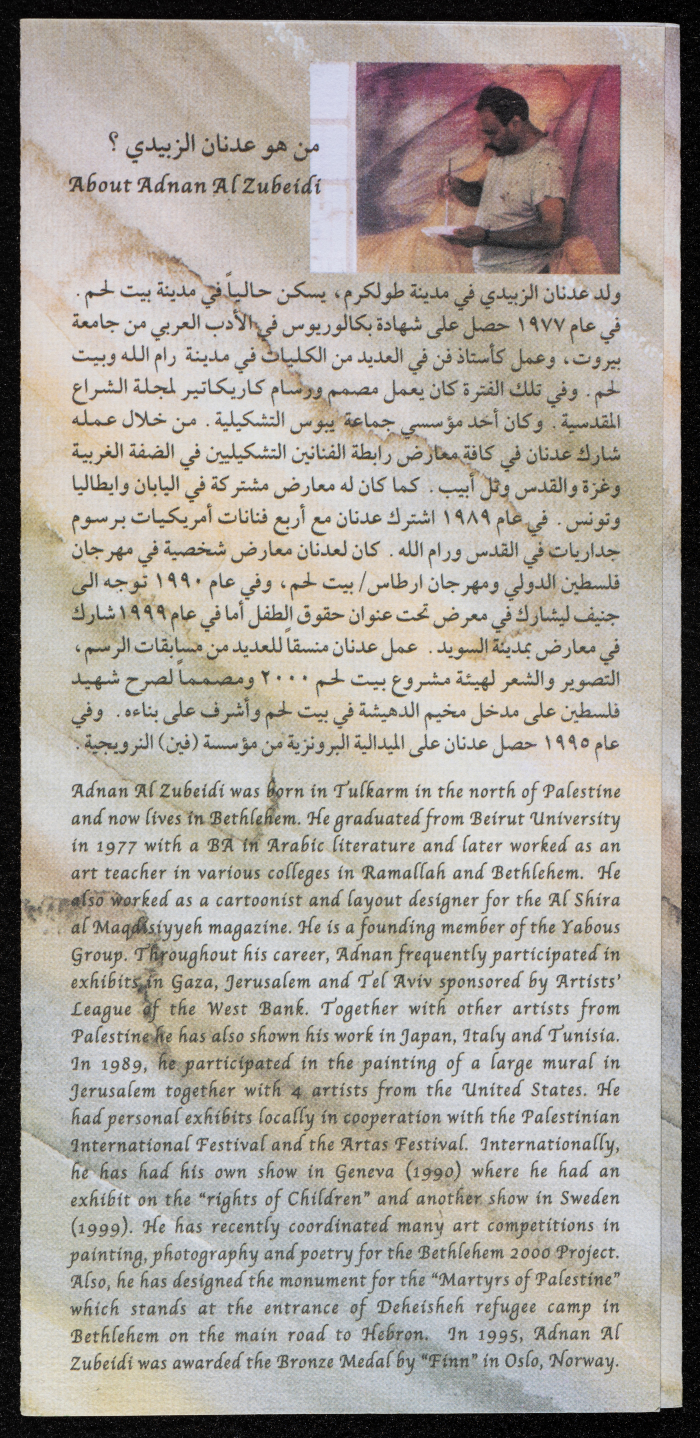 من هو عدنان الزبيدي ؟
About Adnan Al Zubeidi
ولد عدنان الزبيدي في مدينة طولكرم، يسكن حالياً في مدينة بيت لحم .
في عام ١٩٧٧ حصل على شهادة بكالوريوس في الأدب العربي من جامعة
بيروت، وعمل كأستاذ فن في العديد من الكليات في مدينة رام الله وبيت
لحم . وفي تلك الفترة كان يعمل مصمم ورسام كاريكاتير لمجلة الشراع
المقدسية . وكان أحد مؤسسي جماعة يبوس التشكيلية . من خلال عمله
شارك عدنان في كافة معارض رابطة الفنانين التشكيليين في الضفة الغربية
وغزة والقدس وتل أبيب . كما كان له معارض مشتركة في اليابان وايطاليا
وتونس . في عام ١٩٨٩ اشترك عدنان مع أربع فنانات أمريكيات برسوم
جداريات في القدس ورام الله . كان لعدنان معارض شخصية في مهرجان
فلسطين الدولي ومهرجان ارطاس/ بيت لحم، وفي عام ١٩٩٠ توجه الى
جنيف ليشارك في معرض تحت عنوان حقوق الطفل أما في عام ١٩٩٩ شارك
في معارض بمدينة السويد . عمل عدنان منسقاً للعديد من مسابقات الرسم،
التصوير والشعر لهيئة مشروع بيت لحم ٢٠٠٠ ومصمماً لصرح شهيد
فلسطين على مدخل مخيم الدهيشة في بيت لحم وأشرف على بناءه . وفي
عام ١٩٩٥ حصل عدنان على الميدالية البرونزية من مؤسسة (فين) النرويجية .
Adnan Al Zubeidi was born in Tulkarm in the north of Palestine
and now lives in Bethlehem. He graduated from Beirut University
in 1977 with a BA in Arabic literature and later worked as an
art teacher in various colleges in Ramallah and Bethlehem. He
also worked as a cartoonist and layout designer for the Al Shira
al Maqdisiyyeh magazine. He is a founding member of the Yabous
Group. Throughout his career, Adnan frequently participated in
exhibits in Gaza, Jerusalem and Tel Aviv sponsored by Artists'
League of the West Bank. Together with other artists from
Palestine he has also shown his work in Japan, Italy and Tunisia.
In 1989, he participated in the painting of a large mural in
Jerusalem together with 4 artists from the United States. He
had personal exhibits locally in cooperation with the Palestinian
International Festival and the Artas Festival. Internationally,
he has had his own show in Geneva (1990) where he had an
exhibit on the "rights of Children" and another show in Sweden
(1999). He has recently coordinated many art competitions in
painting, photography and poetry for the Bethlehem 2000 Project.
Also, he has designed the monument for the "Martyrs of Palestine"
which stands at the entrance of Deheisheh refugee camp in
Bethlehem on the main road to Hebron. In 1995, Adnan Al
Zubeidi was awarded the Bronze Medal by "Finn" in Oslo, Norway.